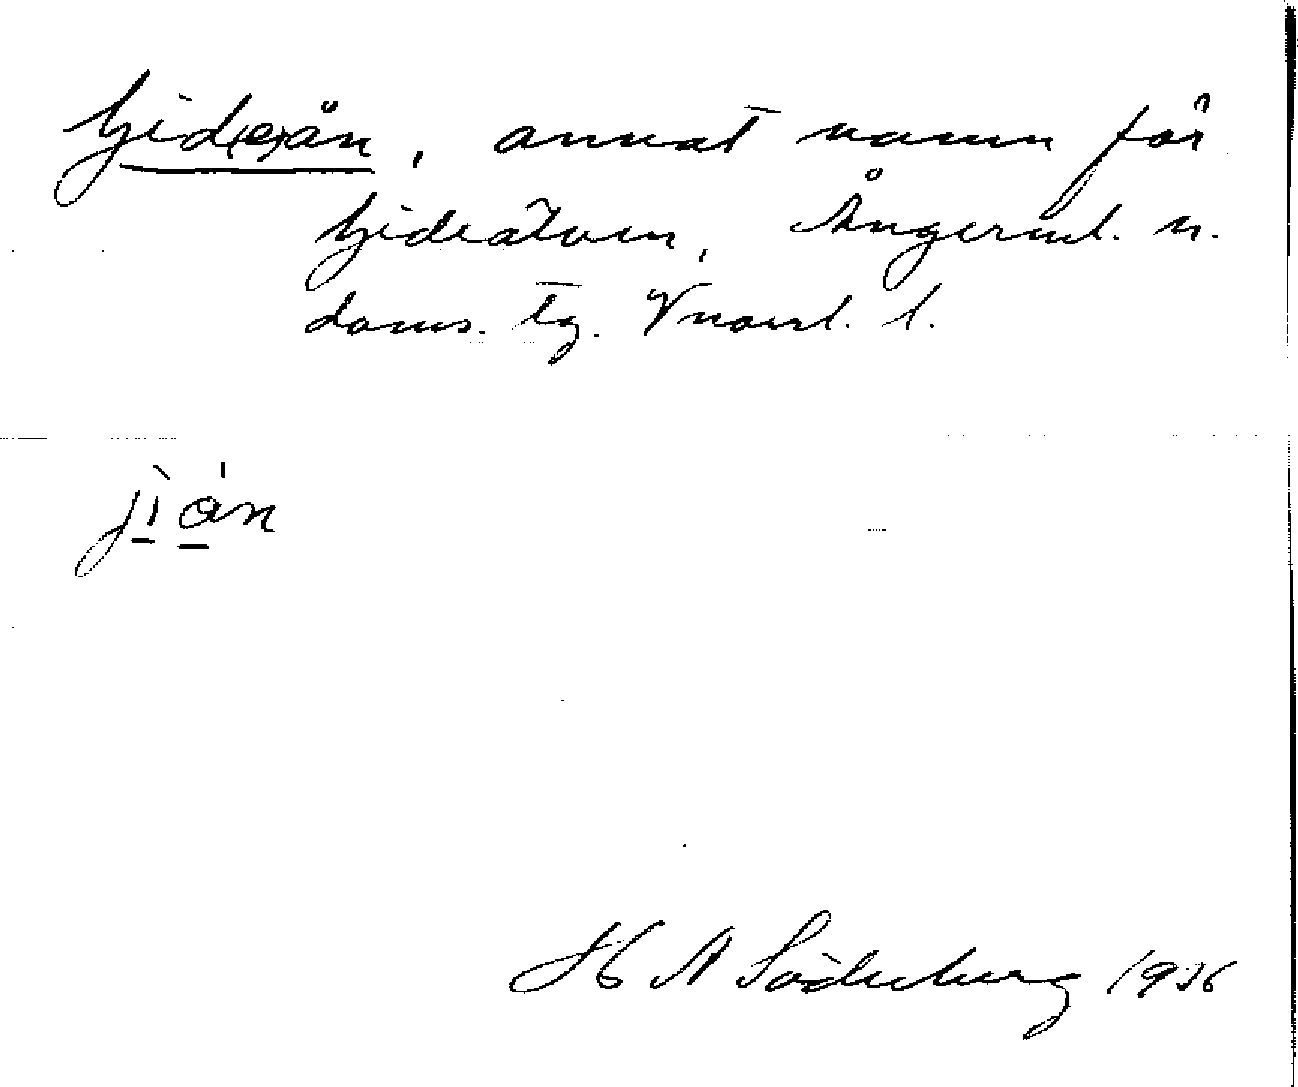 Gid(e)ån, annat namn för
Gideälven, Ångerml. n.
doms. tg. Vnorrl. l.
jì ån
H A Söderberg 1936